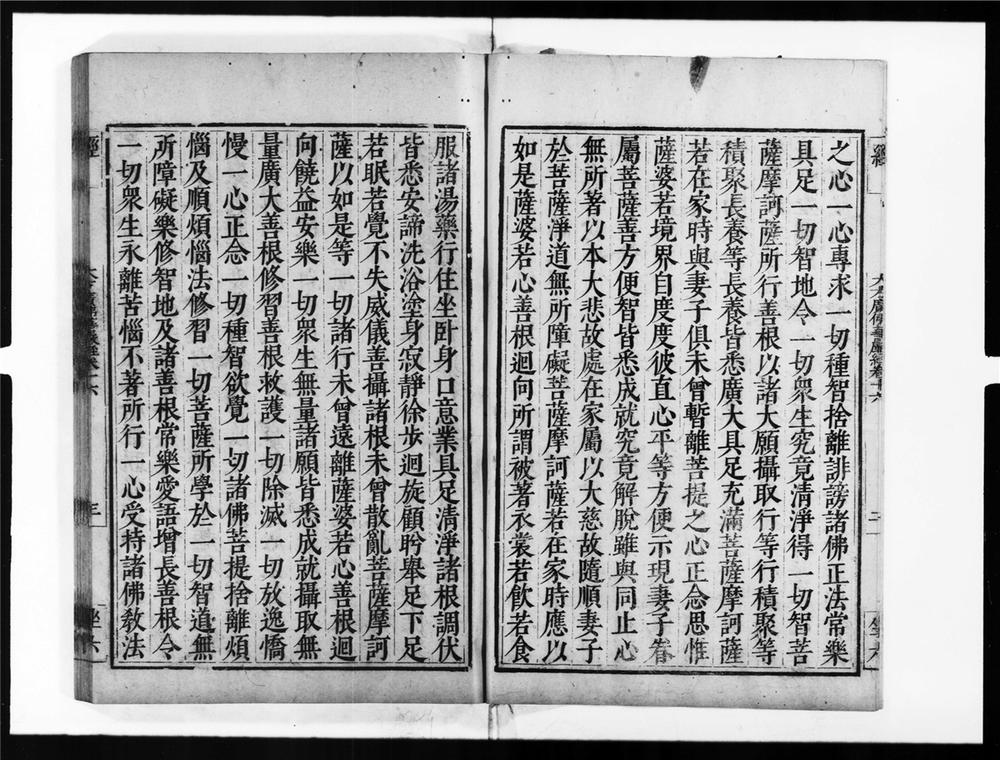 之心一心專求一切種智捨離誹謗諸佛正法常樂
具足一切智地令一切衆生究竟清淨得一切智菩
薩摩訶薩所行善根以諸大願攝取行等行積聚等
積聚長養等長養皆悉廣大具足充滿菩薩摩訶薩
若在家時與妻子俱未曾暫離菩提之心正念思惟
薩婆若境界自度度彼直心平等方便示現妻子眷
屬菩薩善方便智皆悉成就究竟解脫雖與同止心
無所著以本大悲故處在家屬以大慈故隨順妻子
於菩薩淨道無所障礙菩薩摩訶薩若在家時應以
如是薩婆若心善根迴向所謂被著衣裳若飲若食
服諸湯藥行住坐臥身口意業具足清淨諸根調伏
皆悉安諦洗浴塗身寂靜徐步迴旋顧眄舉足下足
若眠若覺不失威儀善攝諸根未曾散亂菩薩摩訶
薩以如是等一切諸行未曾遠離薩婆若心善根迴
向饒益安樂一切衆生無量諸願皆悉成就攝取無
量廣大善根修習善根救護一切除滅一切放逸憍
慢一心正念一切種智欲覺一切諸佛菩提捨離煩
惱及順煩惱法修習一切菩薩所學於一切智道無
所障礙樂修智地及諸善根常樂愛語增長善根令
一切衆生永離苦惱不著所行一心受持諸佛教法